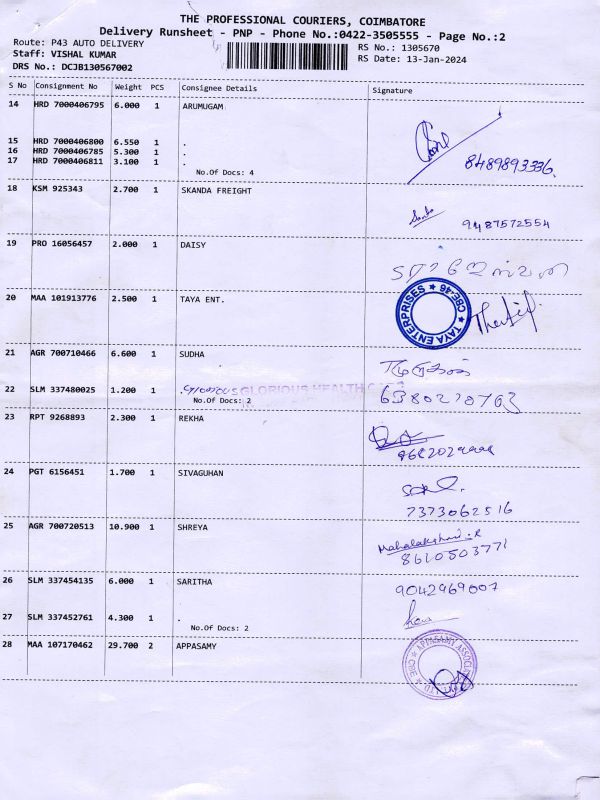 THE PROFESSIONAL COURIERS, COIMBATORE
Delivery Runsheet - PNP - Phone No.:0422-3505555 - Page No.:2
Route: P43 AUTO DELIVERY
RS No.: 1305670
Staff: VISHAL KUMAR
RS Date: 13-Jan-2024
DRS No.: DCJB130567002
S No Consignment No Weight PCS Consignee Details Signature
14 HRD 7000406795 6.000 1 ARUMUGAM.
15 HRD 7000406800 6.550 1 .
16 HRD 7000406785 5.300 1 .
17 HRD 7000406811 3.100 1 .
8489893336.
No.Of Docs: 4
18 KSM 925343 2.700 1 SKANDA FREIGHT
9487572554
19 PRO 16056457 2.000 1 DAISY
20 MAA 101913776 2.500 1 TAYA ENT.
TAYA ENTERPRISES ★ CBE-46 ★
21 AGR 700710466 6.600 1 SUDHA
22 SLM 337480025 1.200 1 . GLORIOUS HEALTH
No.Of Docs: 2
23 RPT 9268893 2.300 1 REKHA
24 PGT 6156451 1.700 1 SIVAGUHAN
7373062516
25 AGR 700720513 10.900 1 SHREYA
8610503771
26 SLM 337454135 6.000 1 SARITHA
9042969007
27 SLM 337452761 4.300 1 .
No.Of Docs: 2
28 MAA 107170462 29.700 2 APPASAMY